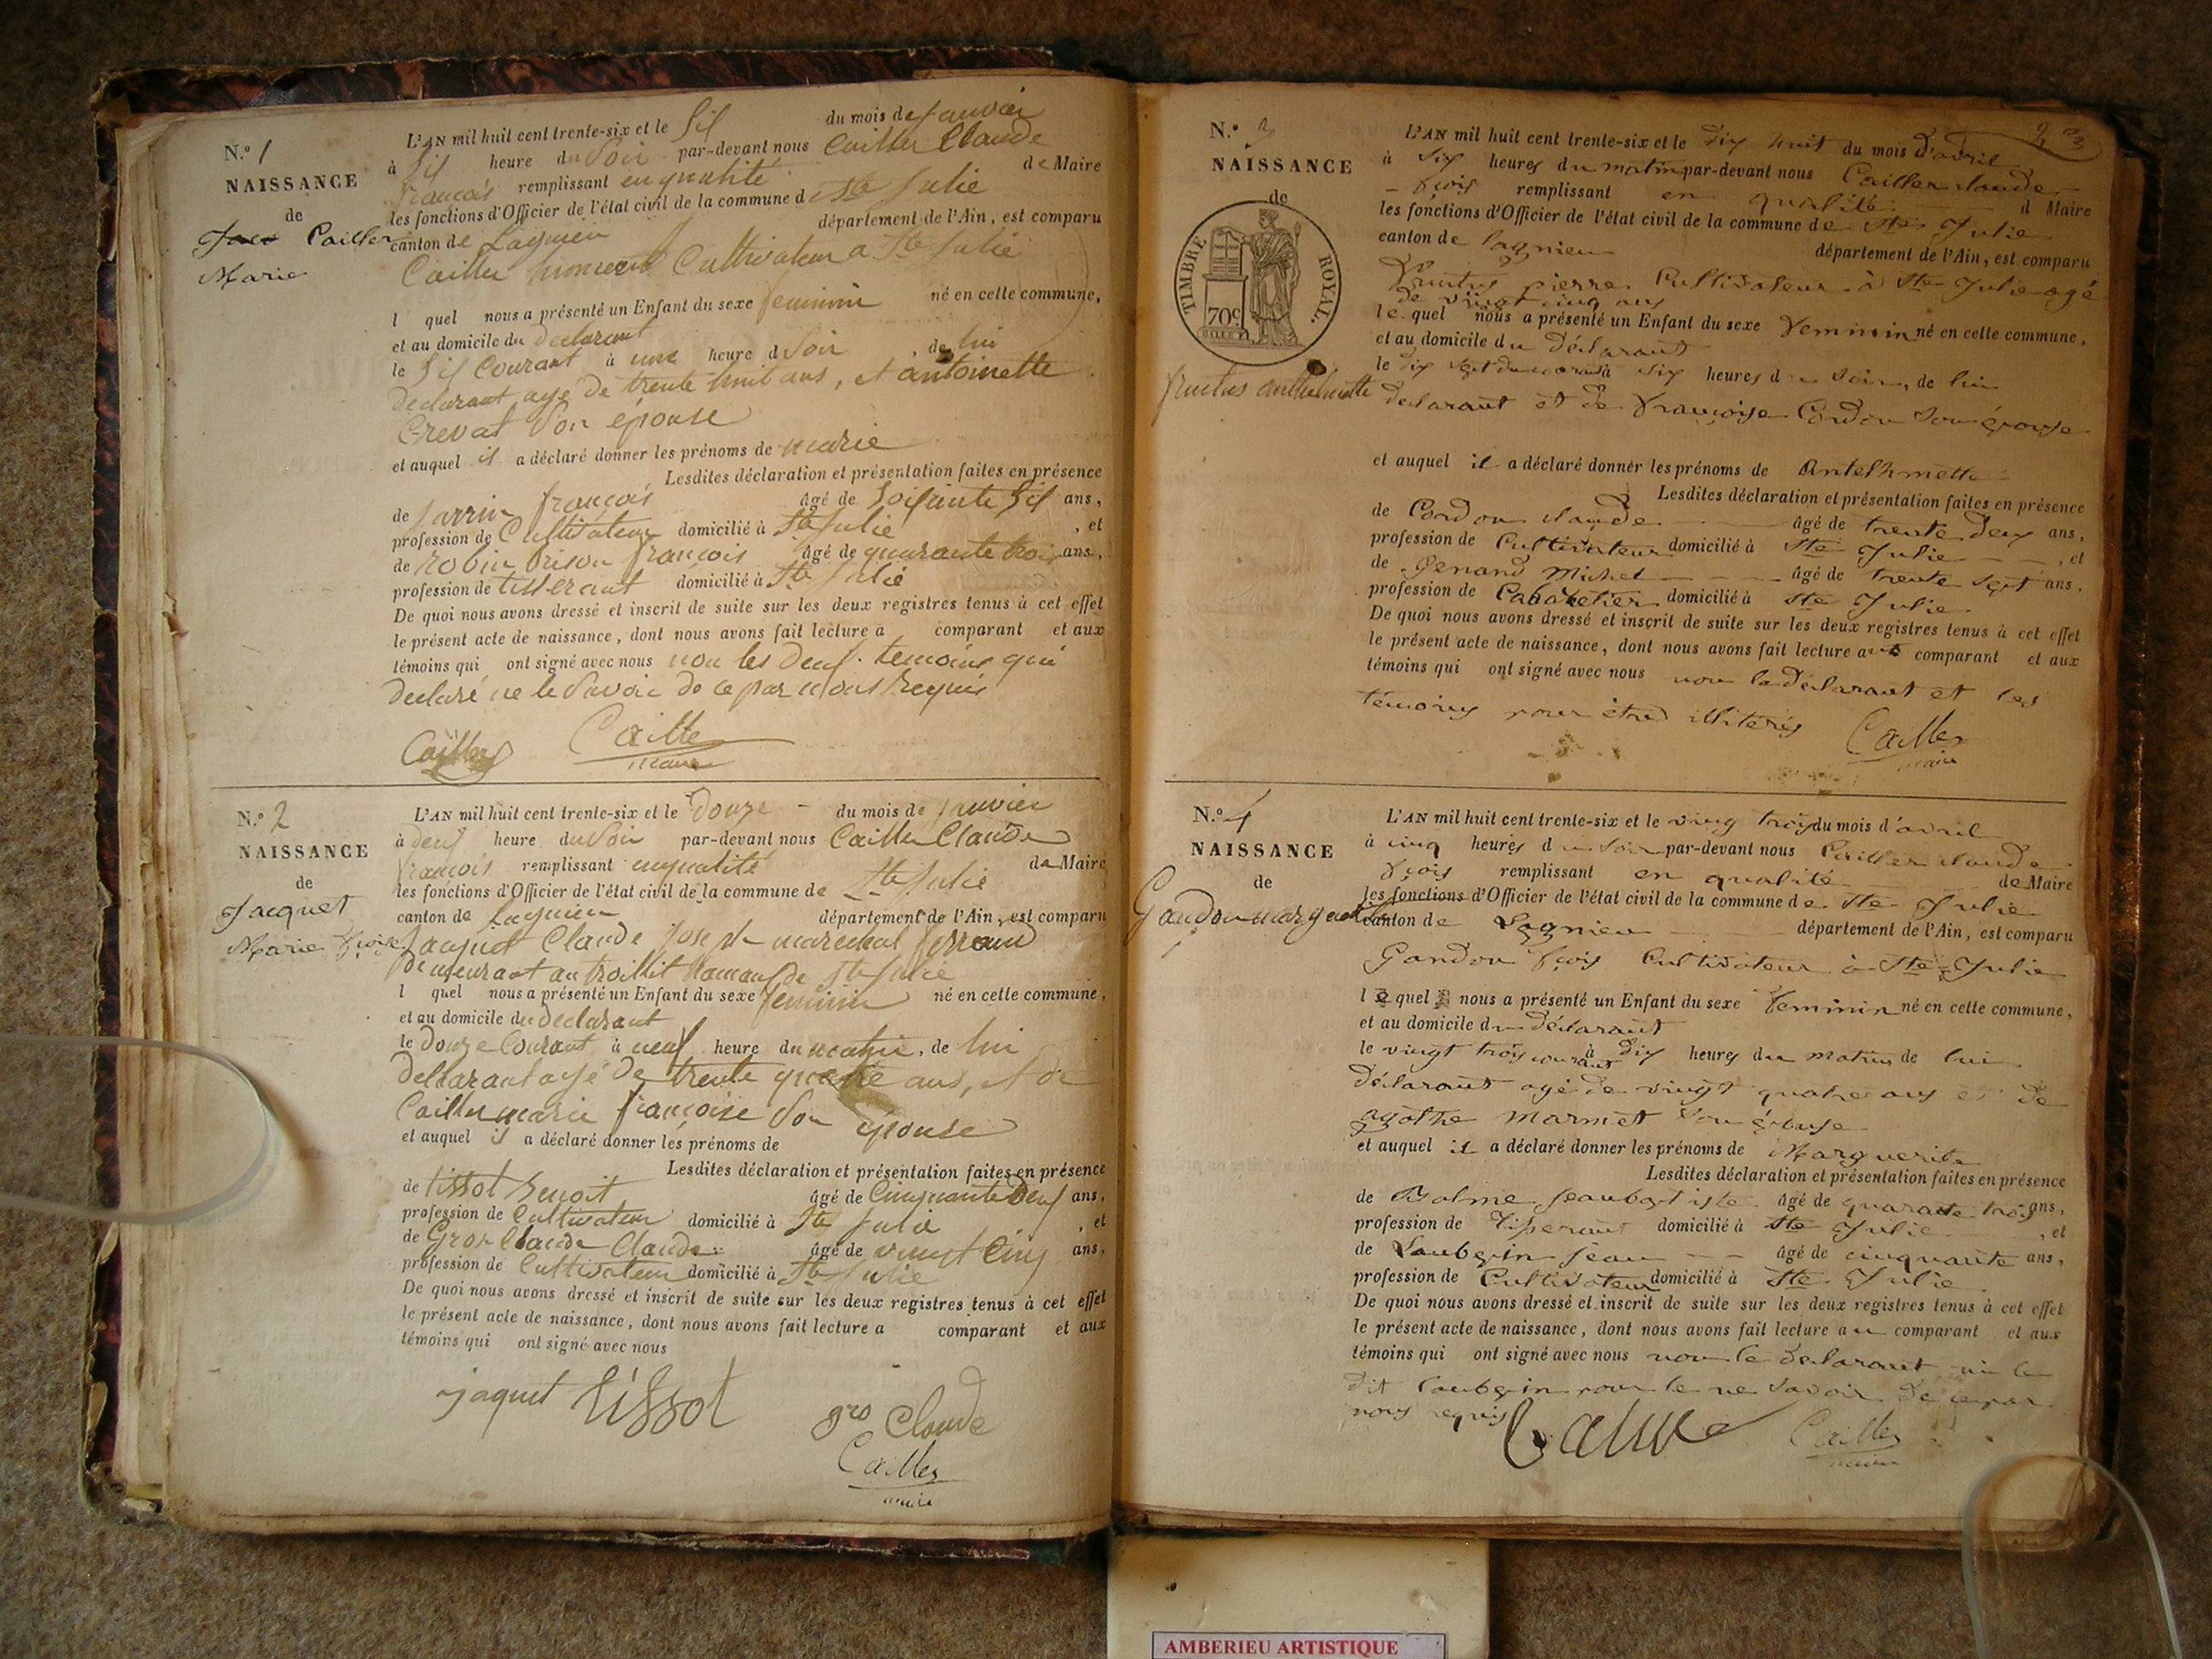 N.º 1
NAISSANCE
de
Cailler
Marie
L'AN mil huit cent trente-six et le Six du mois de Janvier
à Six heure du Soir par-devant nous Cailler Claude
françois remplissant en qualité de Maire
les fonctions d'Officier de l'état civil de la commune d Ste Julie
canton de Lagnieu département de l'Ain, est comparu
Cailler Cultivateur a Ste Julie
l quel nous a présenté un Enfant du sexe feminin né en cette commune,
et au domicile du declarant
le Six Courant à une heure d Soir, de lui
declarant agé de trente huit ans, et antoinette
Crevat Son épouse
et auquel il a déclaré donner les prénoms de marie
Lesdites déclaration et présentation faites en présence
de Jarrin françois âgé de Soixante Six ans,
profession de Cultivateur domicilié à Ste Julie, et
de robin brison françois âgé de quarante trois ans,
profession de tisserant domicilié à Ste Julie
De quoi nous avons dressé et inscrit de suite sur les deux registres tenus à cet effet
le présent acte de naissance, dont nous avons fait lecture a comparant et aux
témoins qui ont signé avec nous non les deux temoins qui
declaré ne le Savoir de ce par nous Requis
Cailler Cailler
maire
N.º 2
NAISSANCE
de
Jacquet
Marie fçoise
L'AN mil huit cent trente-six et le Douze - du mois de Janvier
à deux heure du Soir par-devant nous Cailler Claude
françois remplissant en qualité de Maire
les fonctions d'Officier de l'état civil de la commune de Ste Julie
canton de Lagnieu département de l'Ain, est comparu
Jacquet Claude Joseph marechal ferrand
Demeurant au trollit hamau de Ste Julie
l quel nous a présenté un Enfant du sexe feminin né en cette commune,
et au domicile du declarant
le Douze Courant à neuf heure du matin, de lui
declarant agé De trente quatre ans, et de
Cailler marie françoise Son épouse
et auquel il a déclaré donner les prénoms de
Lesdites déclaration et présentation faites en présence
de tissot benoit âgé de Cinquante Deux ans,
profession de Cultivateur domicilié à Ste Julie, et
de Gros Claude Claude âgé de vingt Cinq ans,
profession de Cultivateur domicilié à Ste Julie
De quoi nous avons dressé et inscrit de suite sur les deux registres tenus à cet effet
le présent acte de naissance, dont nous avons fait lecture a comparant et aux
témoins qui ont signé avec nous
jaquet tissot
gro Claude
Cailler
maire
N.º 3
NAISSANCE
de
TIMBRE ROYAL.
70c
anthelmette
L'AN mil huit cent trente-six et le dix huit du mois d'avril
à six heures du matin par-devant nous Cailler claude
- fçois remplissant en qualité d Maire
les fonctions d'Officier de l'état civil de la commune de Ste Julie
canton de lagnieu département de l'Ain, est comparu
pierre Cultivateur à Ste Julie agé
de vingt cinq ans
le quel nous a présenté un Enfant du sexe feminin né en cette commune,
et au domicile du déclarant
le dix sept du courant à six heures du soir, de lui
déclarant et de françoise Cordon son épouse
et auquel il a déclaré donner les prénoms de Antelhmette
Lesdites déclaration et présentation faites en présence
de Cordon claude âgé de trente deux ans,
profession de Cultivateur domicilié à Ste Julie, et
de Genand Michel âgé de trente sept ans,
profession de Cabaretier domicilié à Ste Julie
De quoi nous avons dressé et inscrit de suite sur les deux registres tenus à cet effet
le présent acte de naissance, dont nous avons fait lecture au comparant et aux
témoins qui ont signé avec nous non le déclarant et les
témoins pour être illiterés
Cailler
maire
N.º 4
NAISSANCE
de
Gandon marguerite
L'AN mil huit cent trente-six et le ving trois du mois d'avril
à cinq heures du soir par-devant nous Cailler claude
fçois remplissant en qualité de Maire
les fonctions d'Officier de l'état civil de la commune de Ste Julie
canton de Lagnieu département de l'Ain, est comparu
Gandon fçois Cultivateur à Ste Julie
le quel nous a présenté un Enfant du sexe feminin né en cette commune,
et au domicile du déclarant
le vingt trois courant à dix heures du matin de lui
déclarant agé de vingt quatre ans et de
agathe Marmet son épouse
et auquel il a déclaré donner les prénoms de Marguerite
Lesdites déclaration et présentation faites en présence
de Balme Jeanbatiste âgé de quarante trois ans,
profession de Tisserant domicilié à Ste Julie, et
de Laubgin Jean âgé de cinquante ans,
profession de Cultivateur domicilié à Ste Julie
De quoi nous avons dressé et inscrit de suite sur les deux registres tenus à cet effet
le présent acte de naissance, dont nous avons fait lecture au comparant et aux
témoins qui ont signé avec nous non le déclarant ni le
dit Laubgin pour le ne savoir de ce par
nous requis
Balme Cailler
maire
AMBERIEU ARTISTIQUE